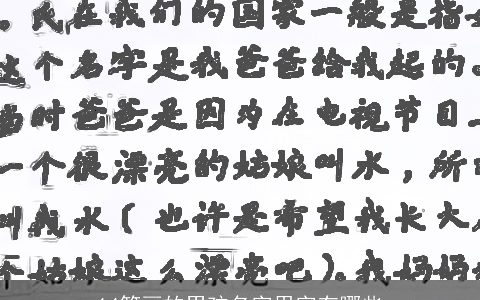 。民在我们的国家一般是指
这个名字是我爸爸给我起的。
当时爸爸是因为在电视节目上
一个很漂亮的姑娘叫水，所
叫我水（也许是希望我长大
个姑娘这么漂亮吧）。我妈妈